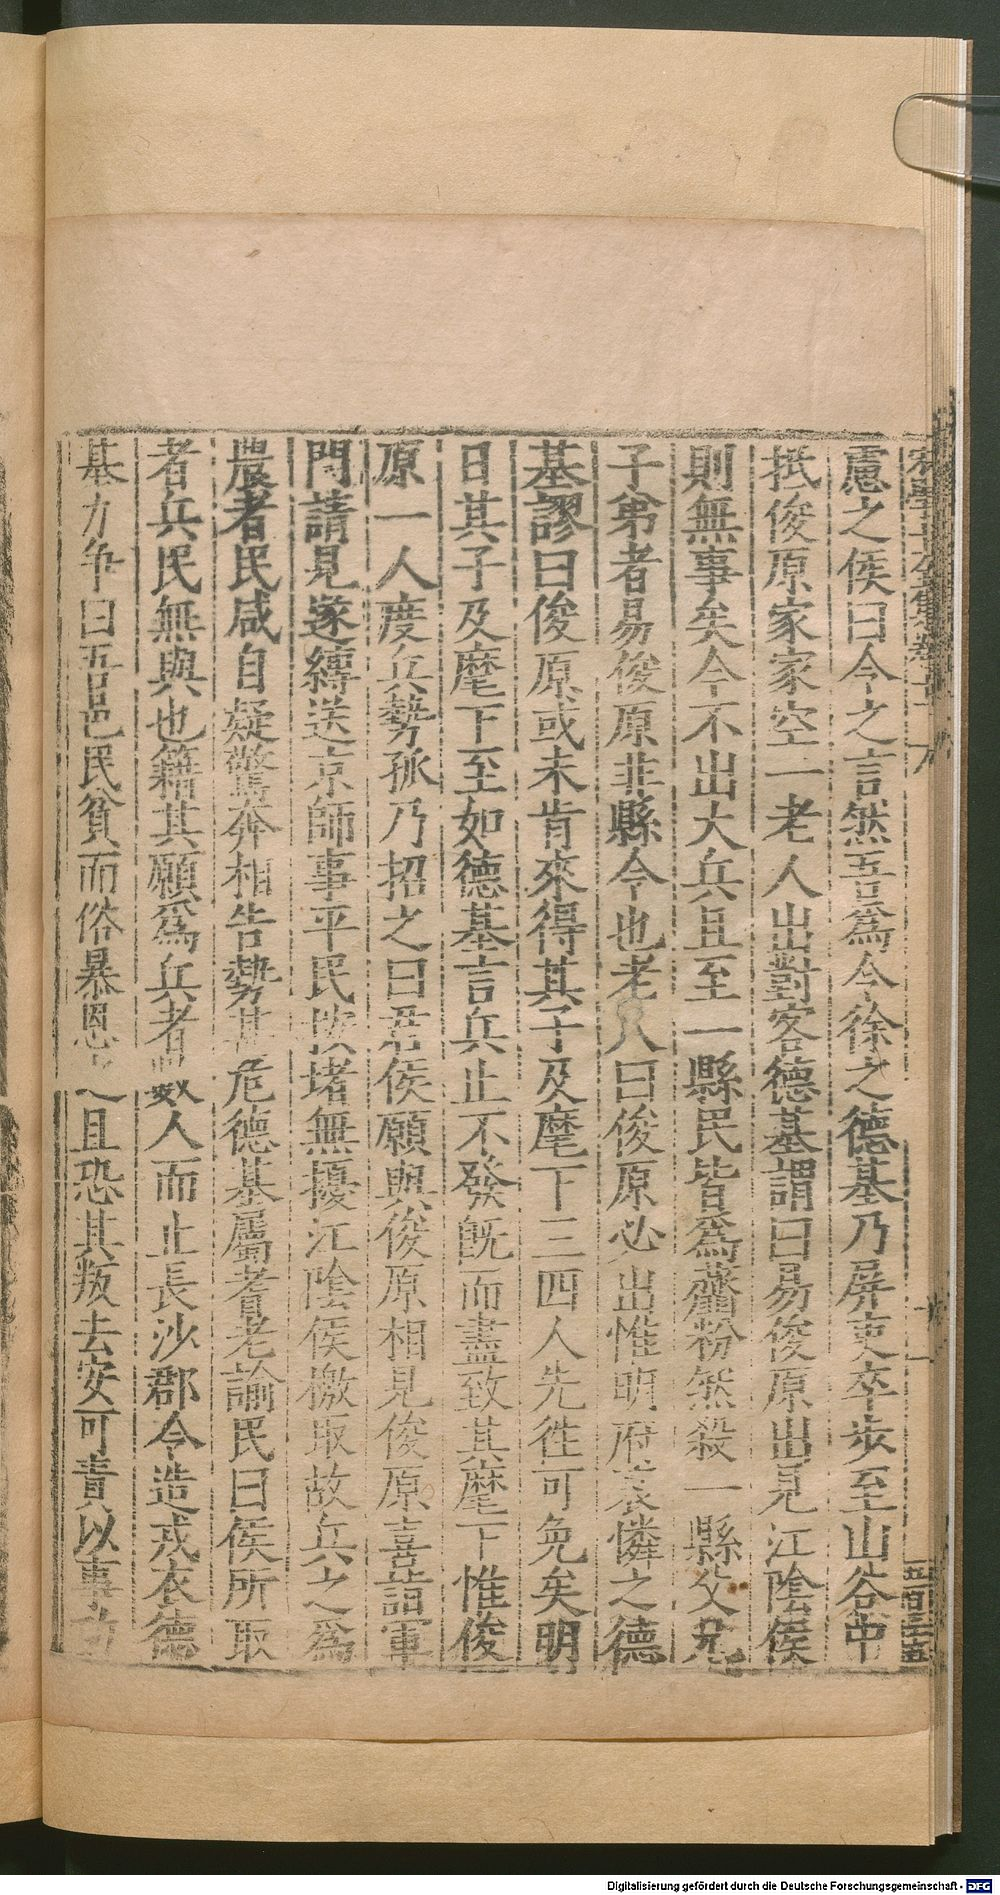 慮之侯曰令之言然吾爲令徐之德基乃屏吏卒歩至山谷中
抵俊原家家空一老人出對客德基謂曰易俊原出見江陰侯
則無事矣今不出大兵且至一縣民皆爲虀粉然殺一縣父兄
子弟者易俊原非縣令也老人曰俊原必出惟明府哀憐之德
基謬曰俊原或未肯來得其子及麾下三四人先徃可免矣明
日其子及麾下至如德基言兵止不發旣而盡致其麾下惟俊
原一人度兵勢孤乃招之曰君侯願與俊原相見俊原喜詣軍
門請見遂縛送京師事平民按堵無擾江陰侯檄取故兵之爲
農者民咸自疑驚奔相告勢甚危德基屬耆老諭民曰侯所取
者兵民無與也籍其願爲兵者數人而止長沙郡令造戎衣德
基力争曰吾邑民貧而俗暴恩之且恐其叛去安可責以事
五百三五
Digitalisierung gefördert durch die Deutsche Forschungsgemeinschaft - DFG